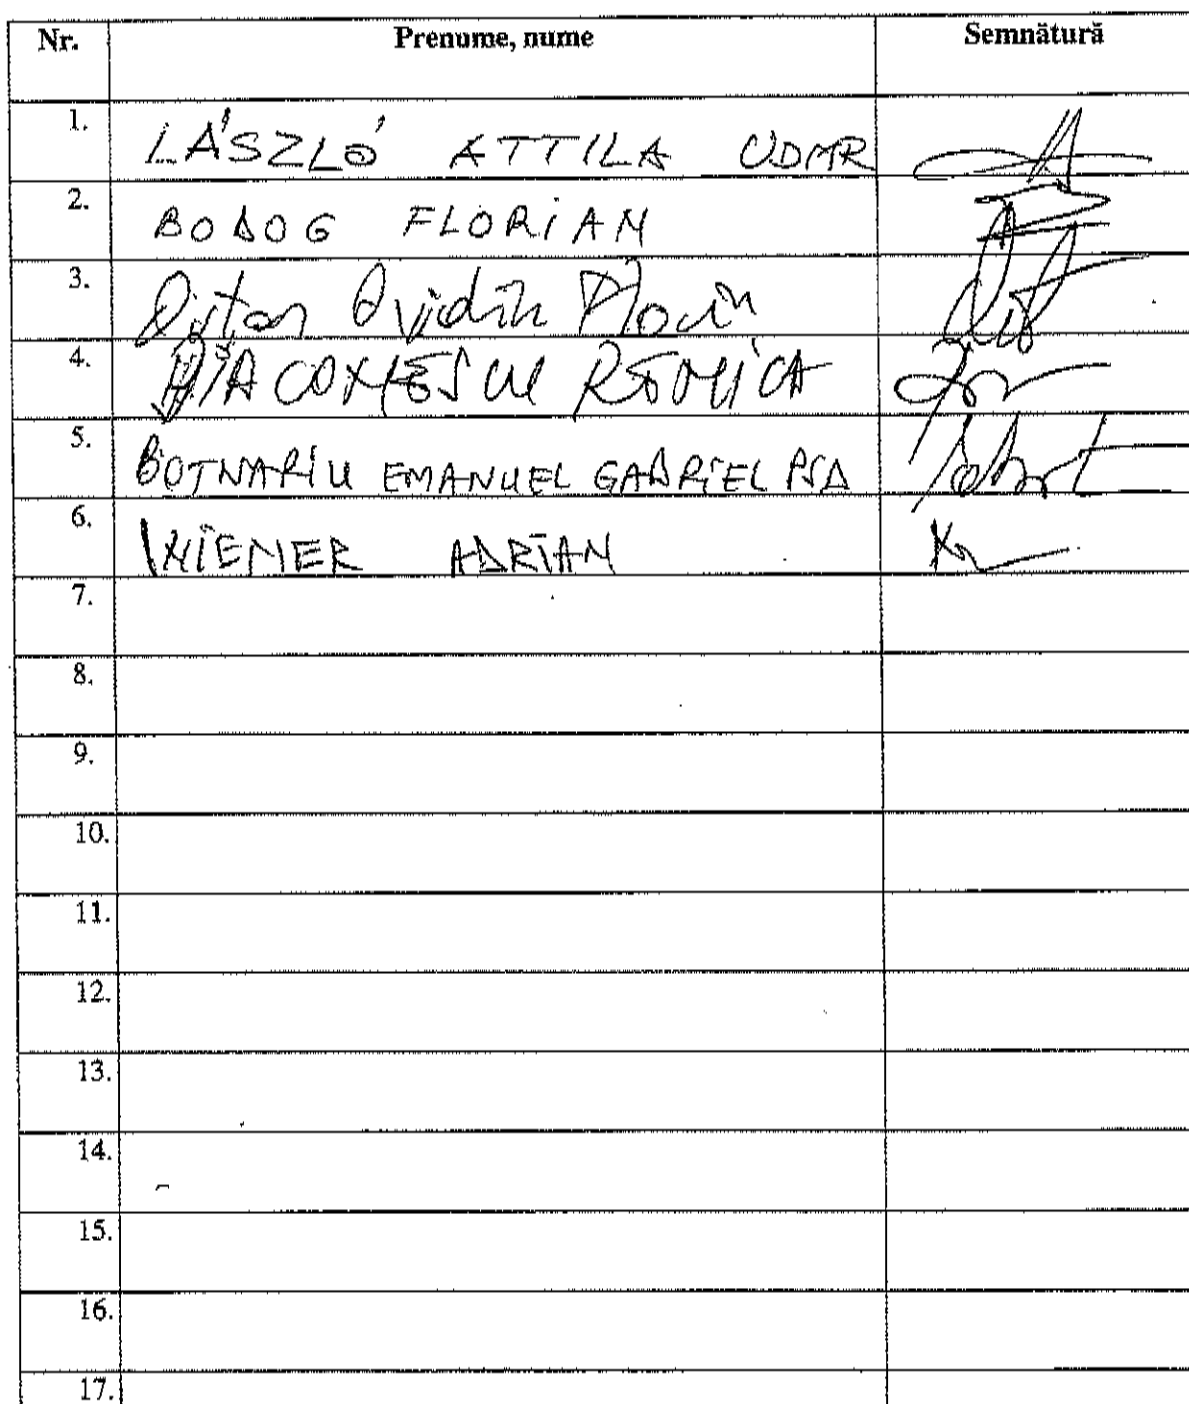 Nr. Prenume, nume Semnătură
1. LÁSZLÓ ATTILA UDMR
2. BODOG FLORIAN
3. Ovidiu Florin
4. DIACONESCU REMICA
5. BOTNARIU EMANUEL GABRIEL PSD
6. WIENER ADRIAN
7.
8.
9.
10.
11.
12.
13.
14.
15.
16.
17.